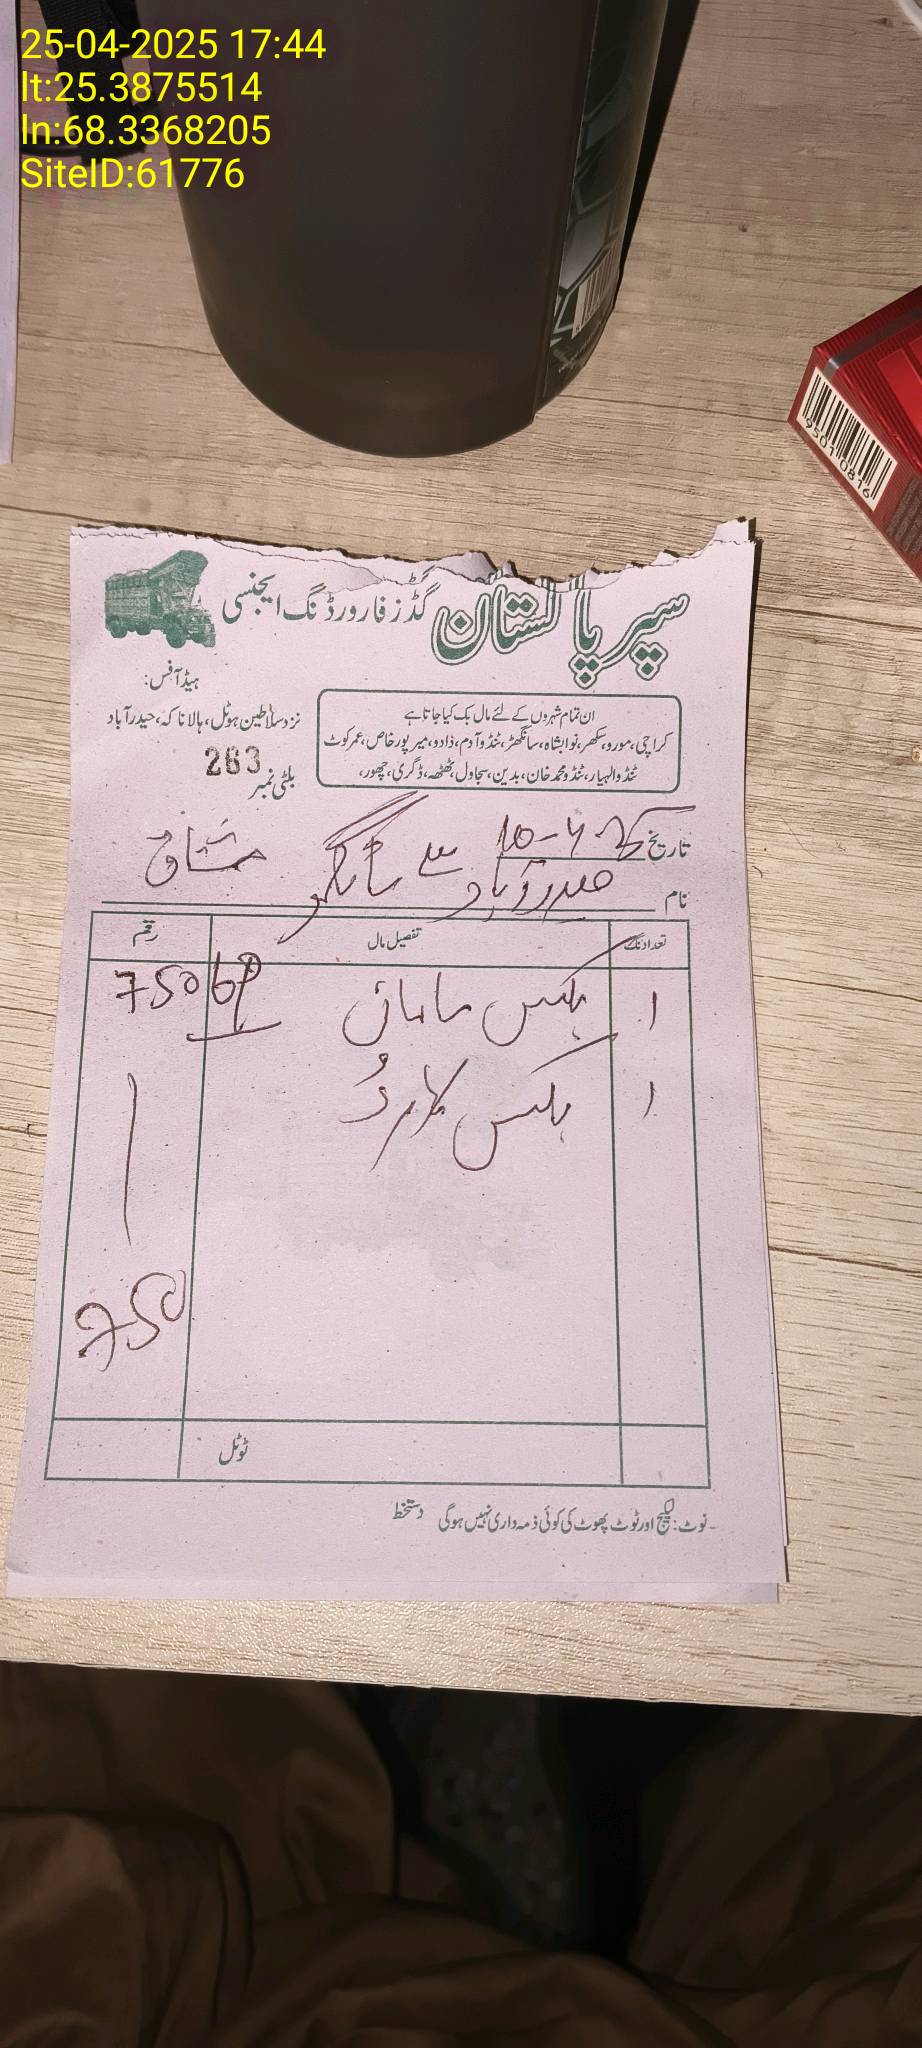 25-04-2025 17:44
lt:25.3875514
ln:68.3368205
SiteID:61776
9501 0816
سپر پاکستان گڈز فارورڈنگ ایجنسی
ہیڈ آفس:
نزد سلاطین ہوٹل، ہالا ناکہ، حیدرآباد
ان تمام شہروں کے لئے مال بک کیا جاتا ہے
کراچی، مورو، سکھر، نوابشاہ، سانگھڑ، ٹنڈوآدم، دادو، میرپور خاص، عمرکوٹ
ٹنڈوالہیار، ٹنڈو محمد خان، بدین، سجاول، ٹھٹھہ، ڈگری، جھور،
بلٹی نمبر 263
تاریخ 10-4-25
نام حیدرآباد سے سانگھڑ مشتاق
تعداد نگ تفصیل مال رقم
1 بکس سامان 750
1 بکس کارڈ
750
ٹوٹل
نوٹ: لیکیج اور ٹوٹ پھوٹ کی کوئی ذمہ داری نہیں ہوگی دستخط